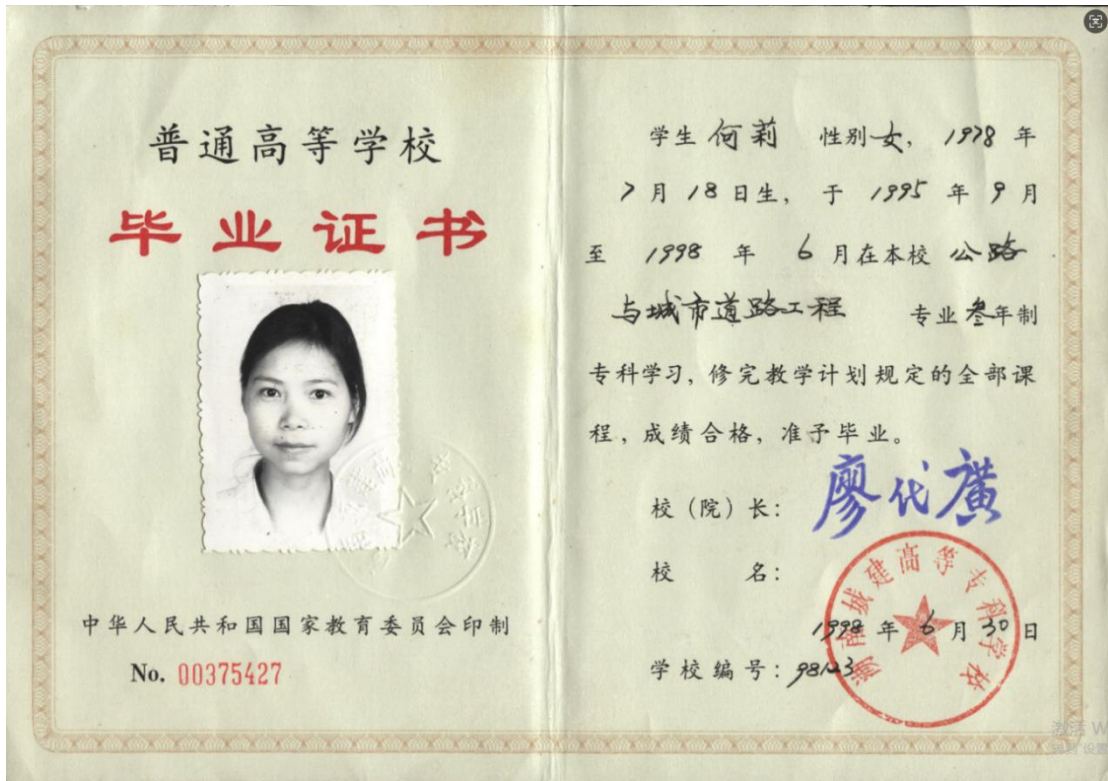 普通高等学校
毕业证书
中华人民共和国国家教育委员会印制
No. 00375427
学生 何莉 性别女，1978 年
7 月 18 日生，于 1995 年 9 月
至 1998 年 6 月在本校 公路
与城市道路工程 专业叁年制
专科学习，修完教学计划规定的全部课
程，成绩合格，准予毕业。
校（院）长：廖代广
校 名：
湖南城建高等专科学校
1998 年 6 月 30 日
学校编号：98123
激活 W